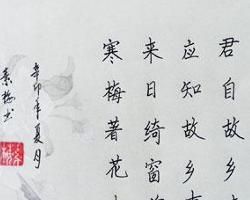 君自故乡
应知故乡
来日绮窗
寒梅著花
辛卯年夏月
素梅书